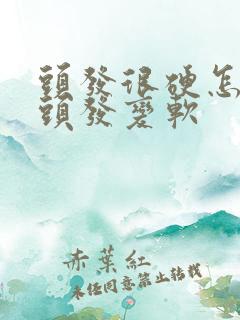 頭發很硬怎
頭發變軟
赤葉紅
未经同意禁止转载